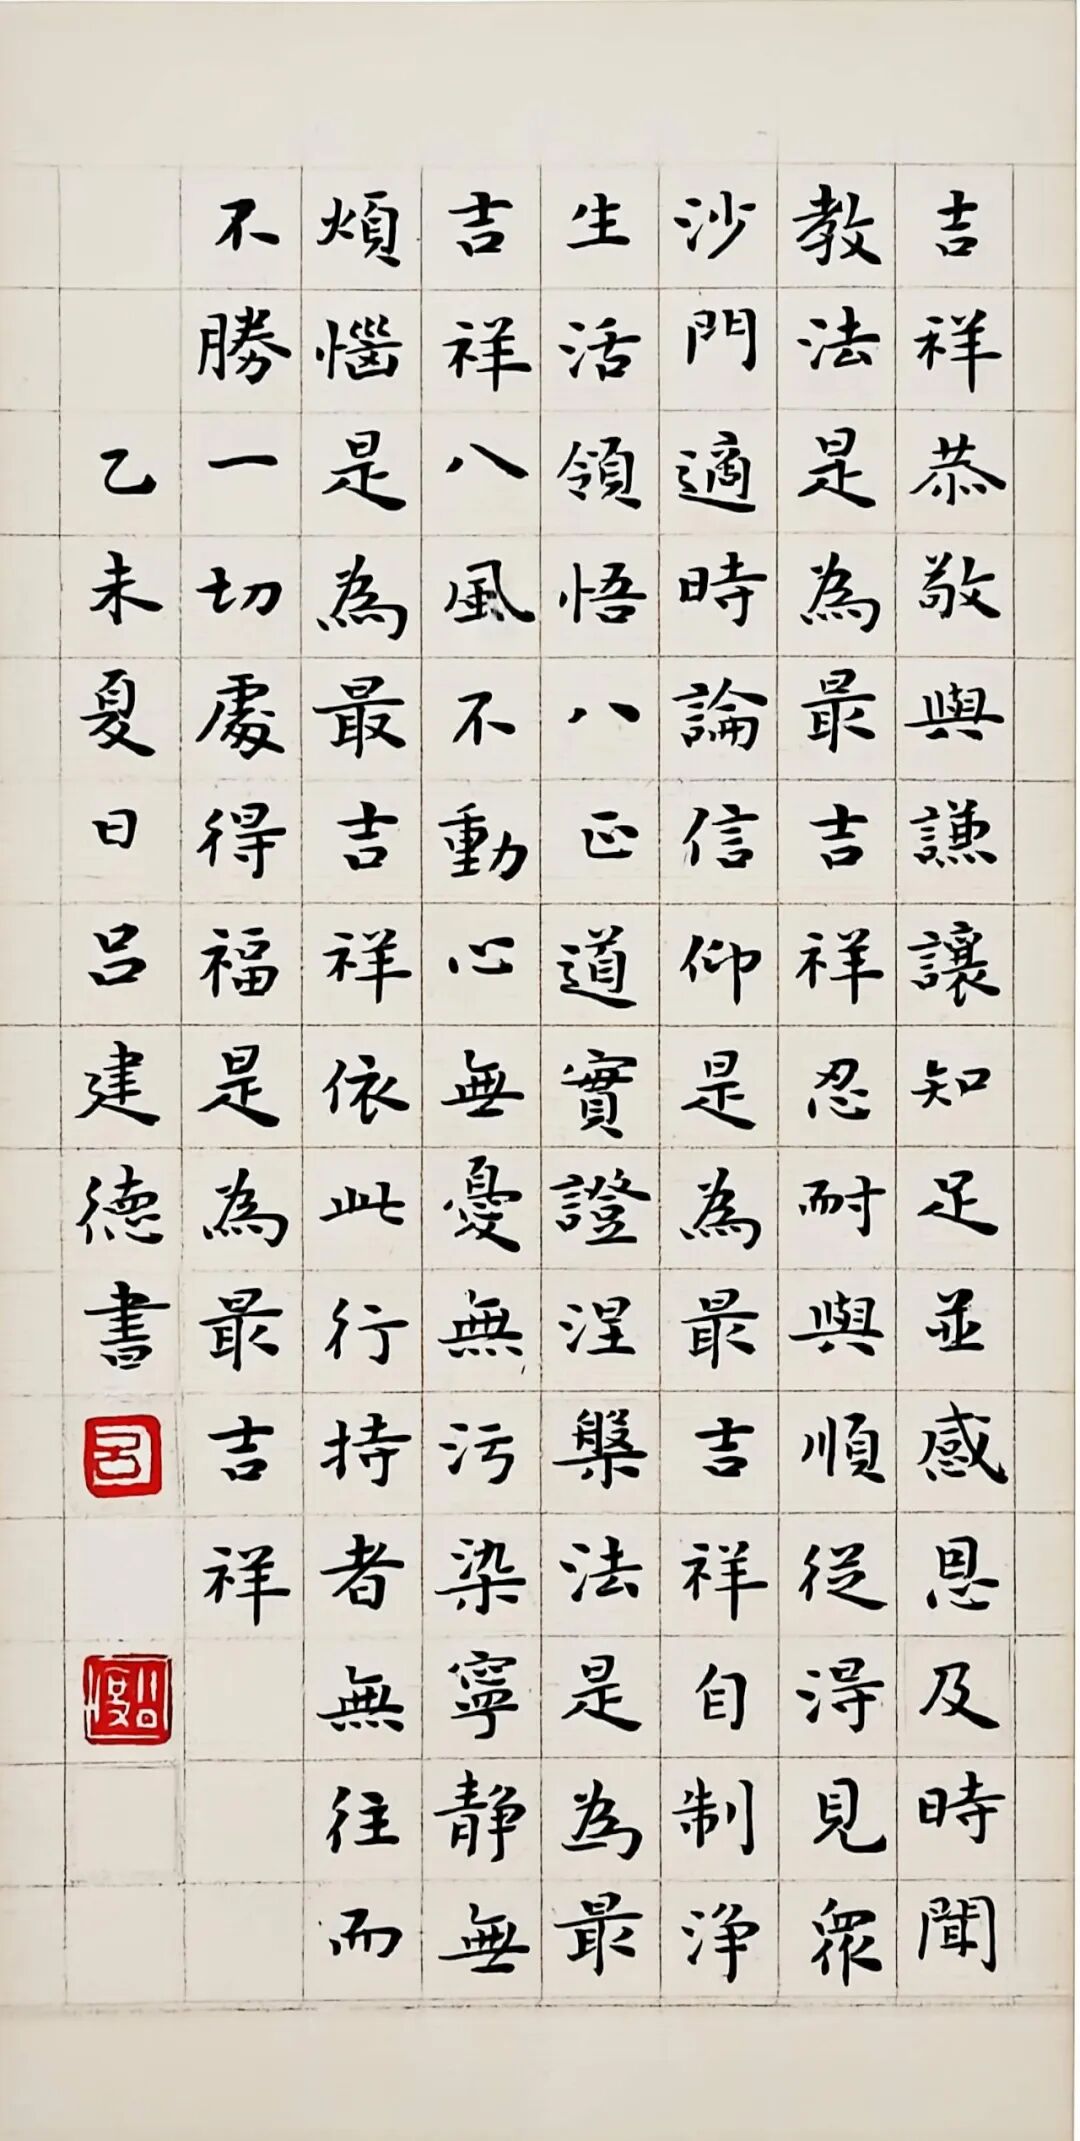 吉祥恭敬與謙讓知足並感恩及時聞
教法是為最吉祥忍耐與順從得見眾
沙門適時論信仰是為最吉祥自制淨
生活領悟八正道實證涅槃法是為最
吉祥八風不動心無憂無污染寧静無
煩惱是為最吉祥依此行持者無往而
不勝一切處得福是為最吉祥
乙未夏日呂建德書